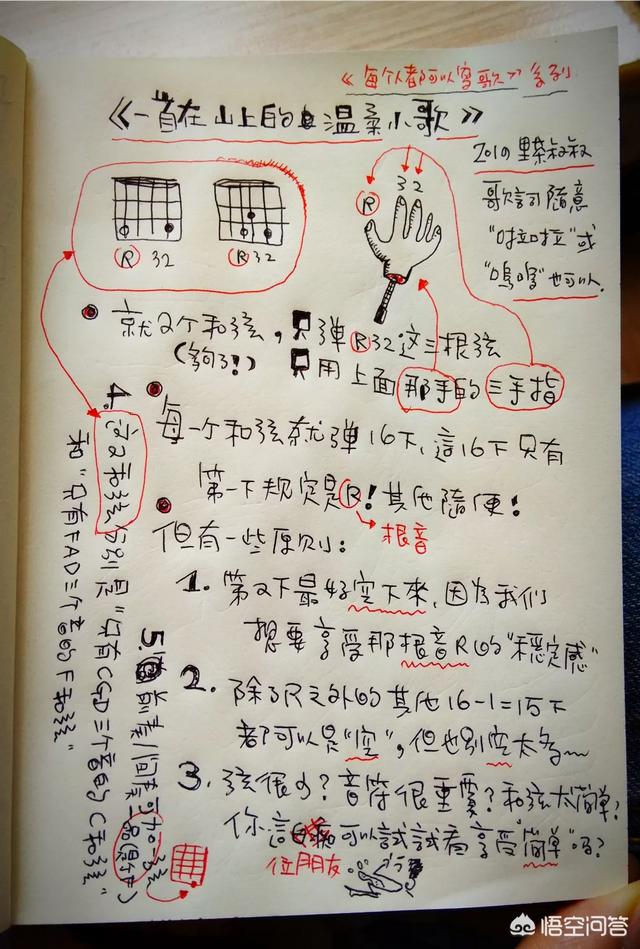 《每个人都可以写歌》系列
《一首在山上的温柔小歌》
2010 野叔叔
歌詞隨意
"啦啦"或
"嗚嗚"也可以.
R 32
R 32
R
32
就2个和弦，只弹R32这三根弦
(夠了!)
只用上面那手的三手指
每一个和弦就弹16下、這16下只有
第一下规定是R！其他隨便！
根音
但有一些原则：
1. 第2下最好空下來，因為我們
想要享受那根音R的"穩定感"
2. 除了R之外的其他16-1=15下
都可以是"空"，但也别空太多
3. 弦很少？音符很重要？和弦太简單？
你這位朋友可以試試看享受"简單"吗？
4. 这2和弦分别是"只有CGD三个音的C和弦"
和"只有FAD三个音的F和弦"
5. 前奏/间奏可加
悟空问答